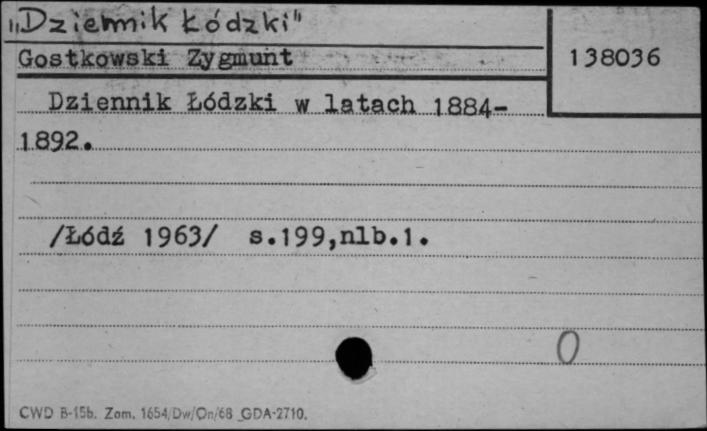 „Dziennik Łódzki"
Gostkowski Zygmunt
138036
Dziennik Łódzki w latach 1884-
1892.
/Łódź 1963/ s.199,nlb.1.
0
CWD B-15b. Zam. 1654/Dw/On/68 GDA-2710.